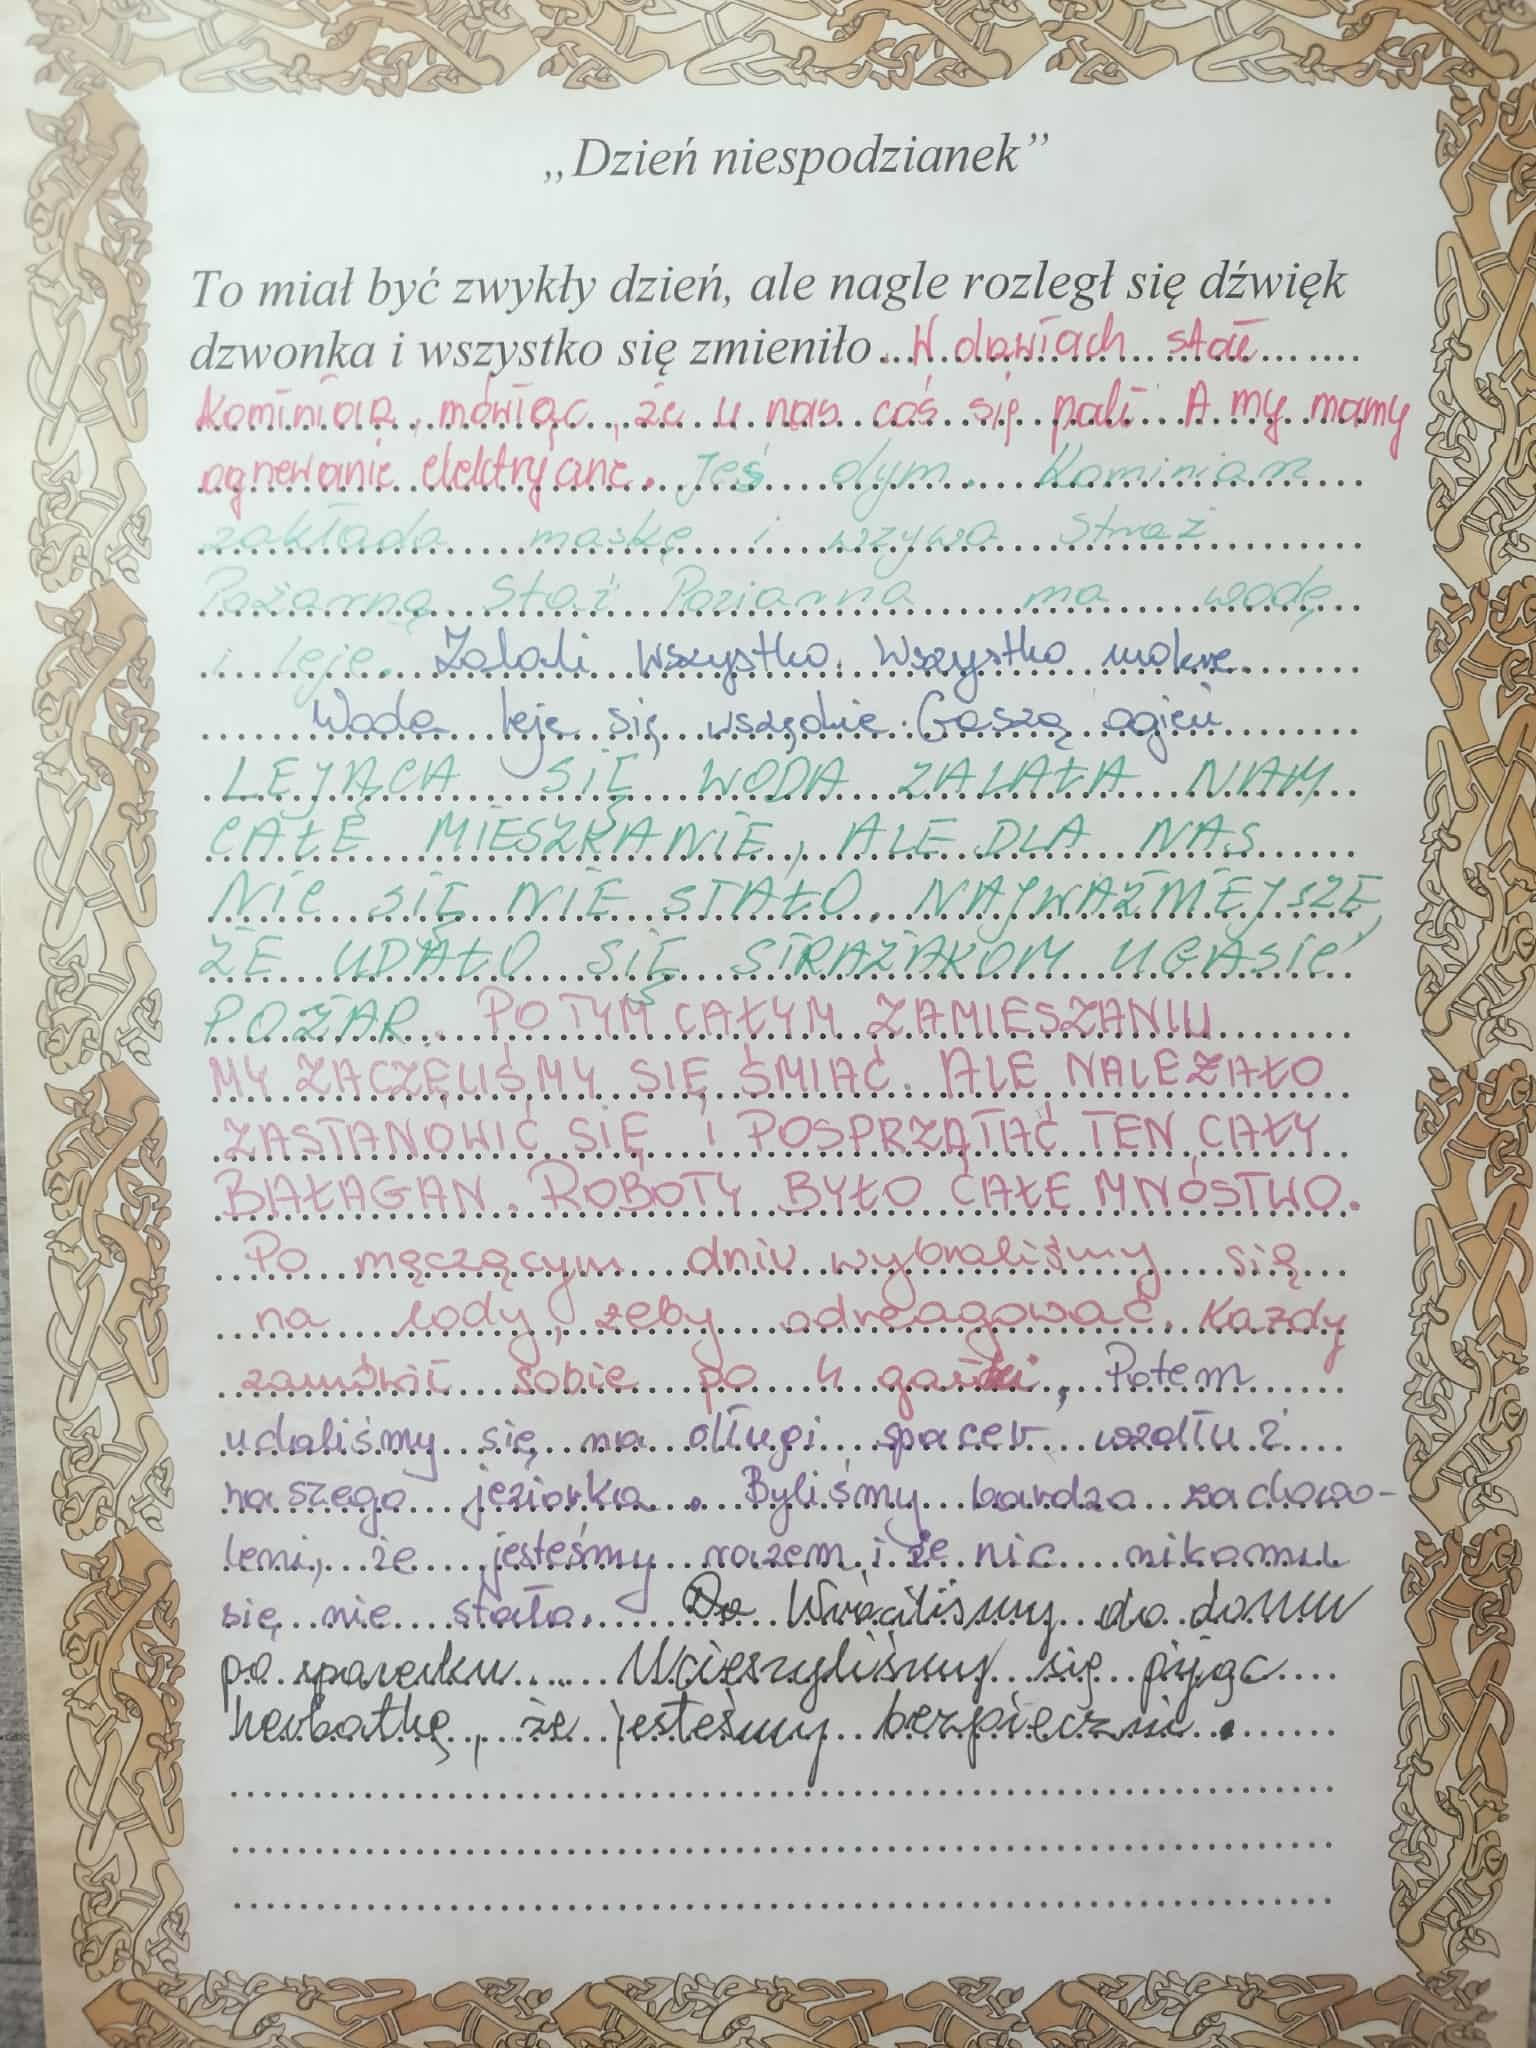 „Dzień niespodzianek”
To miał być zwykły dzień, ale nagle rozległ się dźwięk
dzwonka i wszystko się zmieniło. W dawiach stał
Kominiaz, mówiąc, że u nas coś się pali. A my mamy
ogrzewanie elektryczne. Jeś dym. Kominiarz
zakłada maskę i wzywa Straż
Pożarną. Staż Pozianna ma wodę
i leje. Zalali wszystko. Wszystko mokre.
Woda leje się wszędzie. Gaszą ogień
LEJĄCA SIĘ WODA ZALAŁA NAM
CAŁE MIESZKANIE, ALE DLA NAS
NIC SIĘ NIE STAŁO. NAJWAŻNIEJSZE,
ŻE UDAŁO SIĘ STRAŻAKOM UGASIĆ
POŻAR. PO TYM CAŁYM ZAMIESZANIU
MY ZACZĘLIŚMY SIĘ ŚMIAĆ. ALE NALEŻAŁO
ZASTANOWIĆ SIĘ I POSPRZĄTAĆ TEN CAŁY
BIAŁAGAN. ROBOTY BYŁO CAŁE MNÓSTWO.
Po męczącym dniu wybraliśmy się
na lody, żeby odreagować. Każdy
zamówił sobie po 4 gałki, Potem
udaliśmy się na długi spacer wzdłuż
naszego jeziorka. Byliśmy bardzo zadowo-
leni, że jesteśmy razem i że nic nikomu
się nie stało. Do Wróciliśmy do domu
po spacerku. Ucieszyliśmy się pijąc
herbatkę, że jesteśmy bezpieczni.